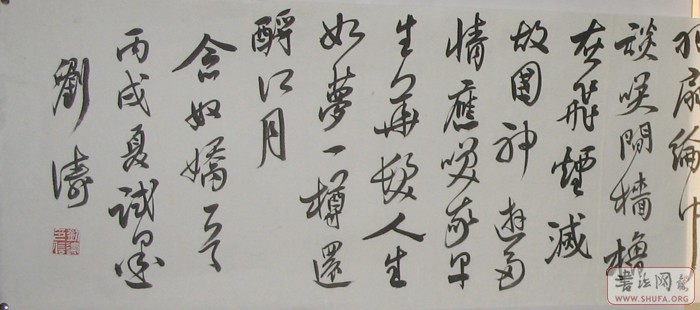 羽扇綸巾
談笑間檣櫓
灰飛煙滅
故國神遊多
情應笑我早
生華髮人生
如夢一樽還
酹江月
念奴嬌
丙戌夏試墨
劉濤
書法网
WWW.SHUFA.ORG